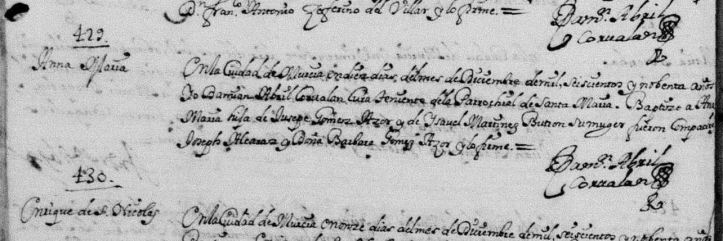 Dn. Franco. Antonio Zeferino del Villar y lo firme. =
Damn. Abril
Corvalan
429.
Anna Maria
En la Ciudad de Murcia en diez dias, del mes de Diciembre de mil, Seiscientos y nobenta años
Yo Damian Abril Corvalan Cura Teniente de la Parrochial de Santa Maria. Baptize a Ana
Maria hija de Jusepe Gomez Azor y de Ysavel Martinez Butron su muger fueron Compadres
Joseph Alcaraz y Doña Barbara Gomez Azor y lo firme. =
Damn. Abril
Corvalan
430.
Enrique de S. Nicolas
En la Ciudad de Murcia en onze dias del mes de Diciembre de mil, seiscientos y nobenta años